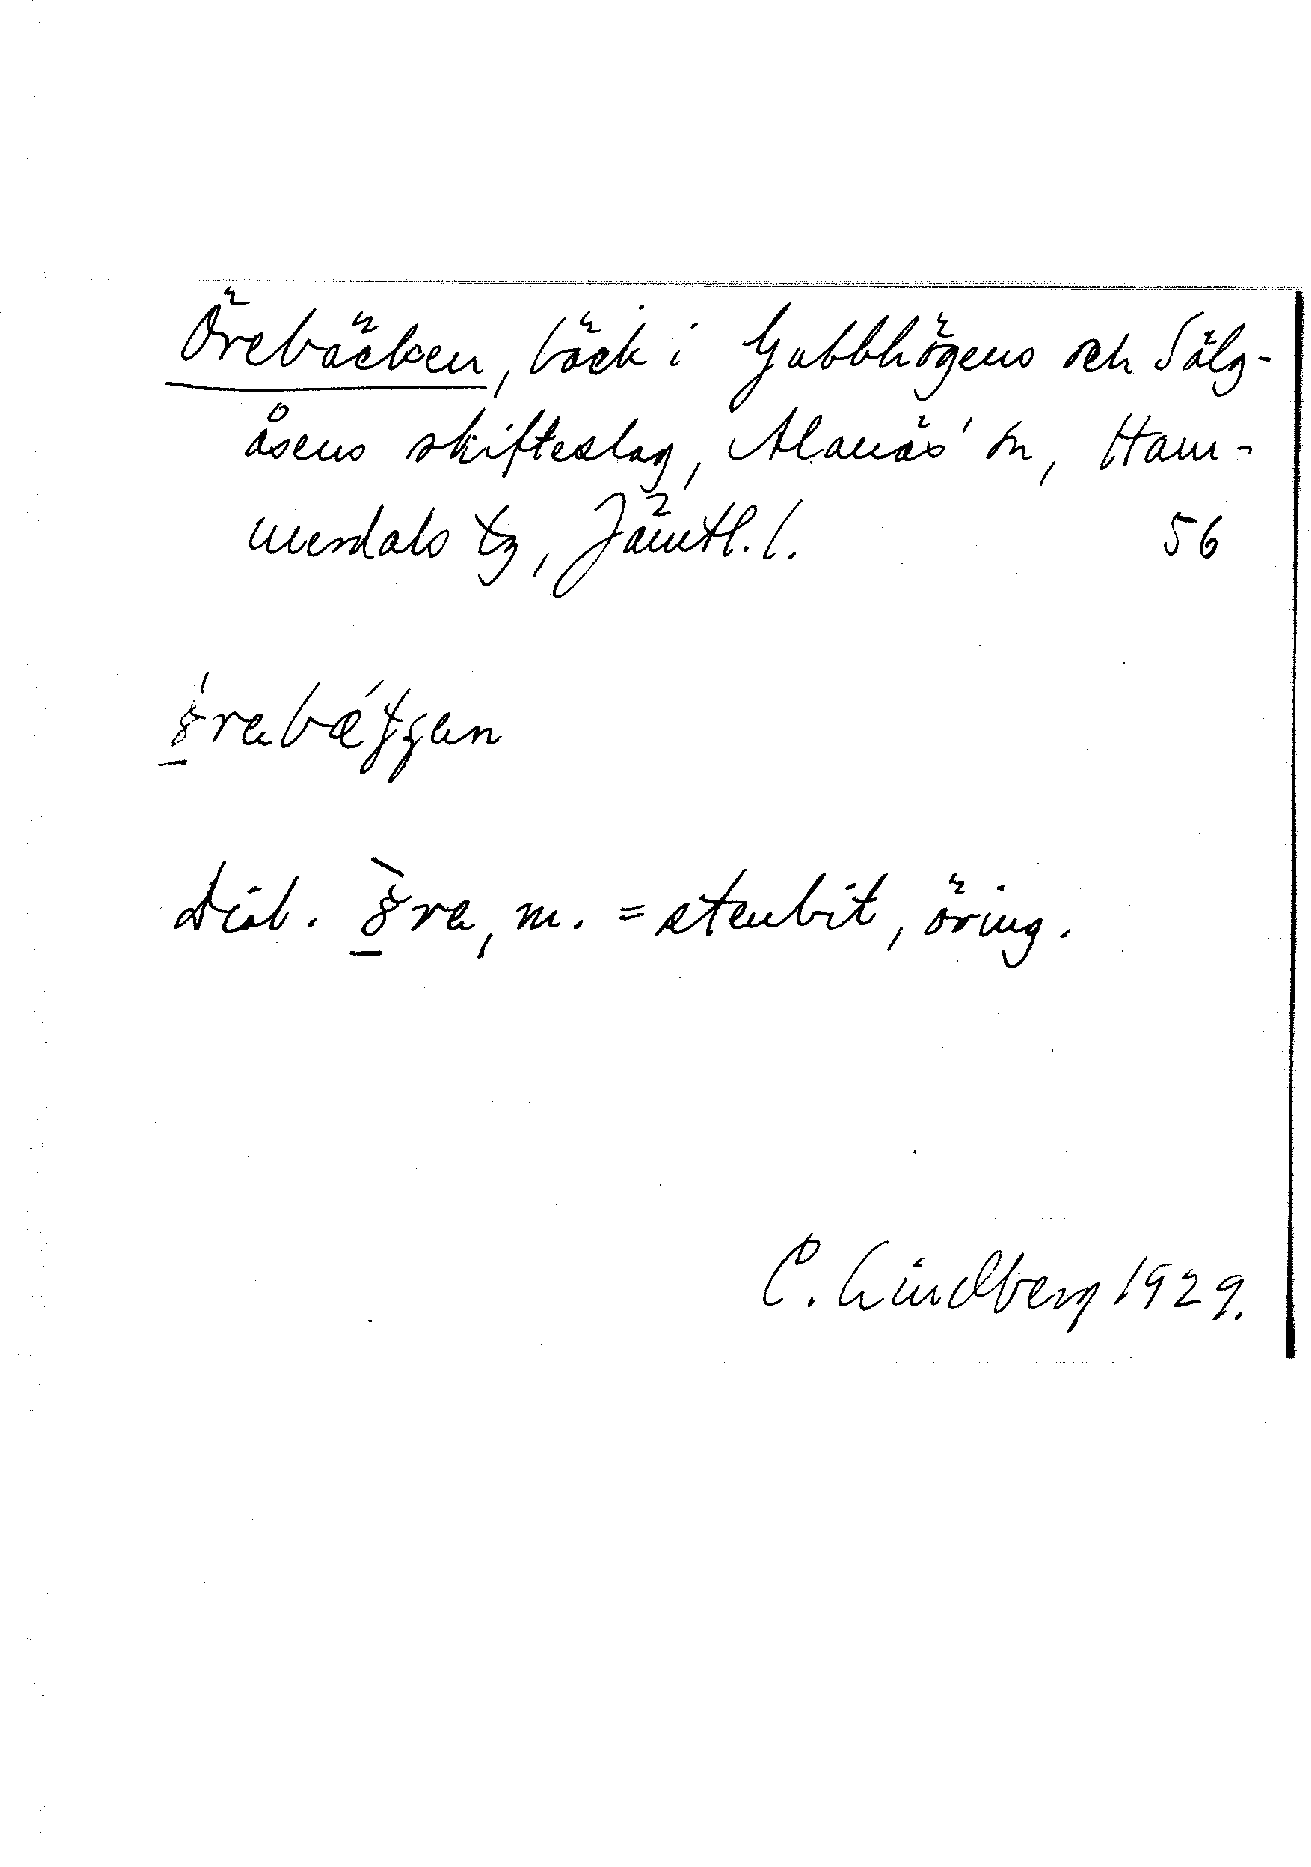 Örebäcken, bäck i Gubbhögens och Sälg-
åsens skifteslag, Alanäs' sn, Ham-
merdals tg, Jämtl. l. 56
Dial. m. = stenbit, öring.
C. Lindberg 1929.